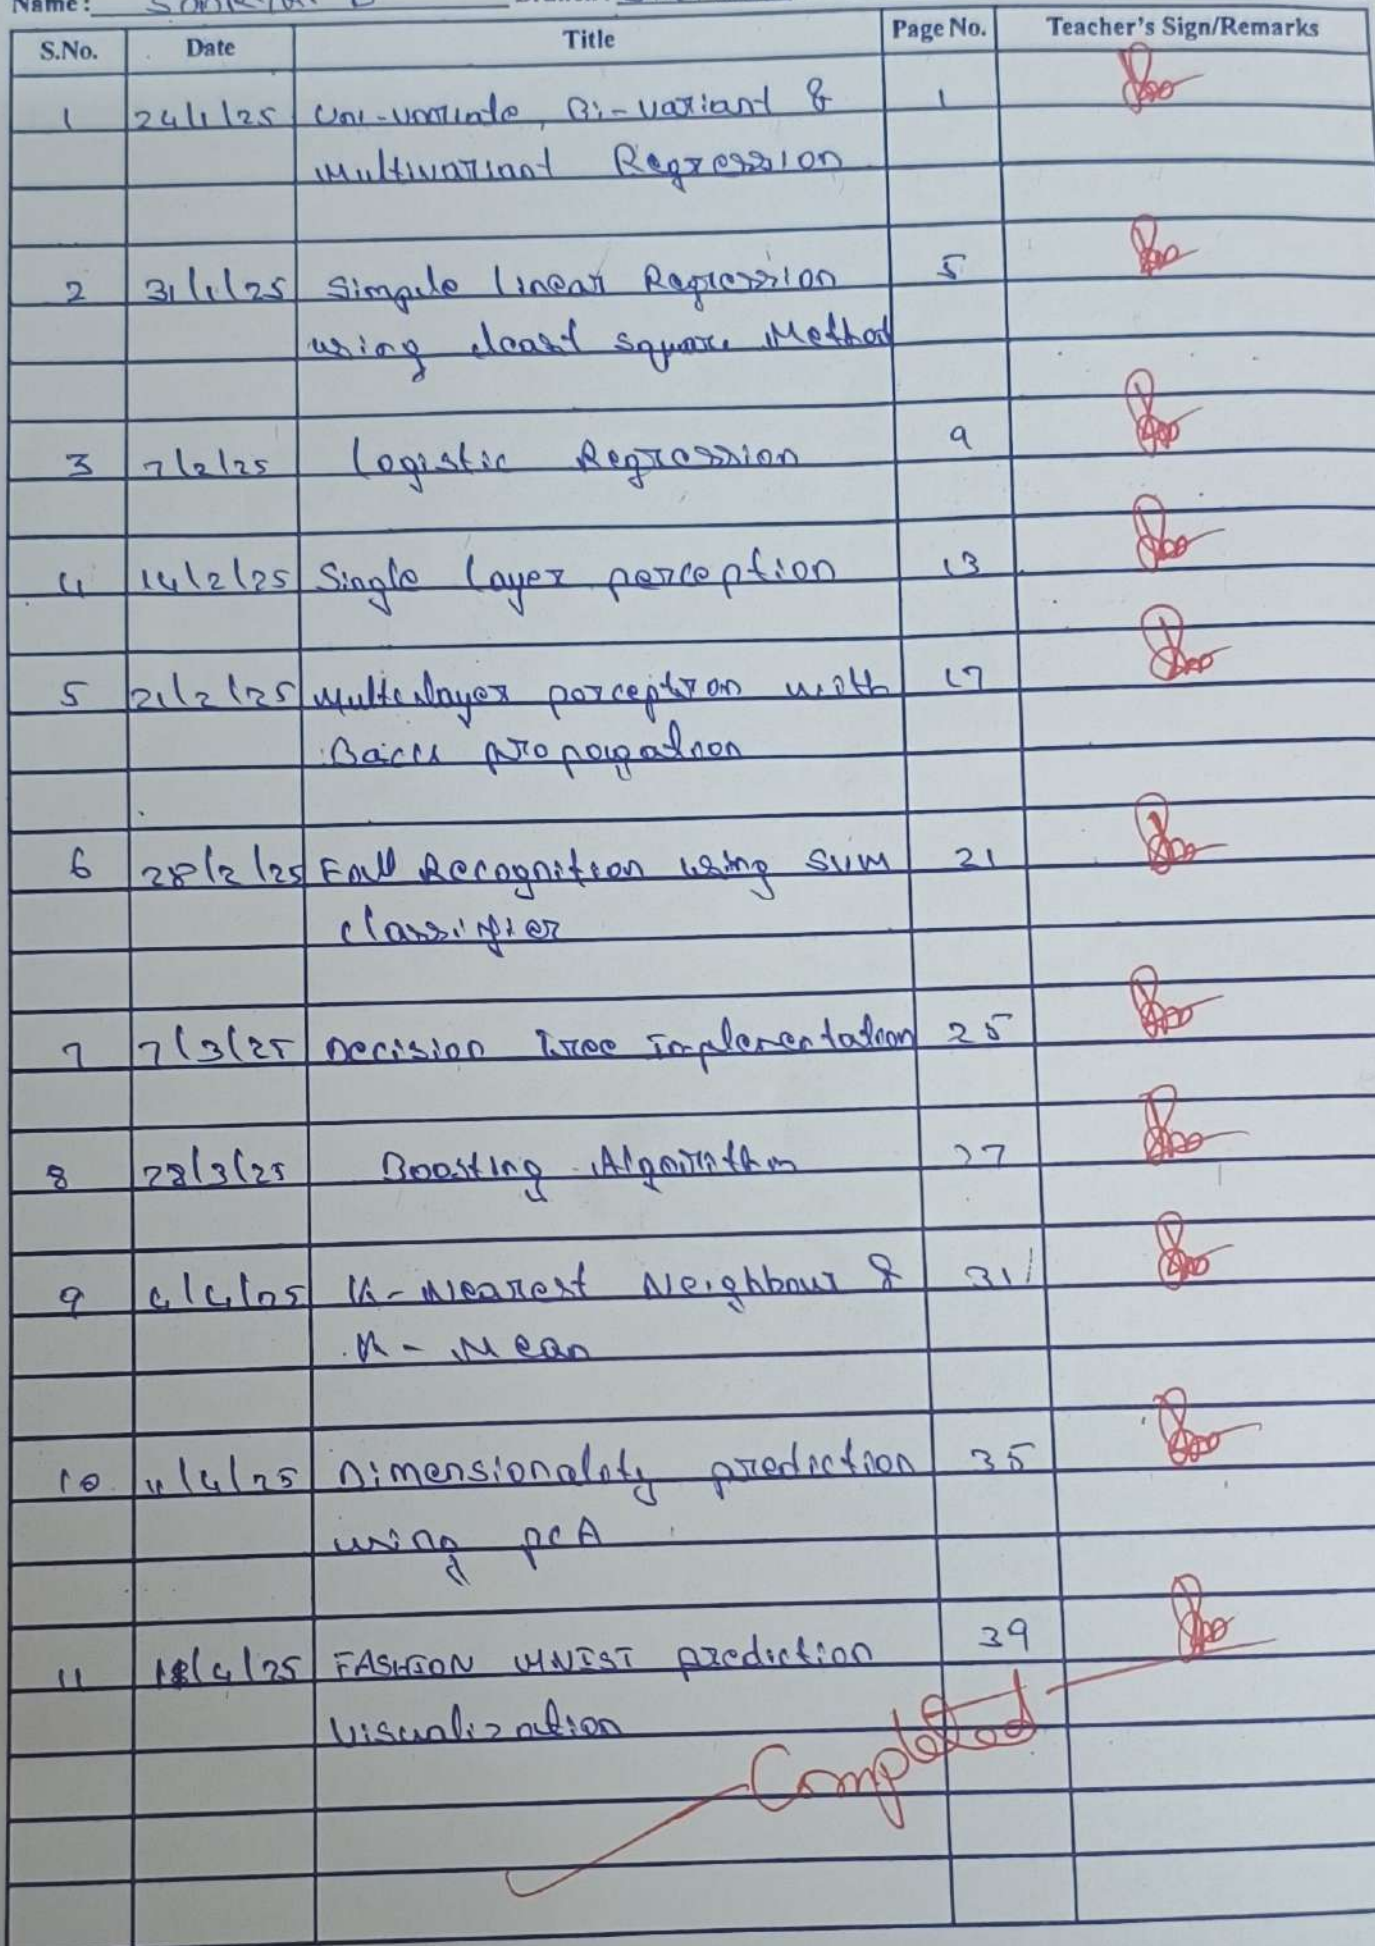 Name:
S.No. Date Title Page No. Teacher's Sign/Remarks
1 24/1/25 Uni-variate, Bi-variant & 1
Multivariant Regression
2 31/1/25 Simple linear Regression 5
using least square Method
3 7/2/25 Logistic Regression 9
4 14/2/25 Single layer perception 13
5 21/2/25 Multilayer perceptron with 17
Back propogation
6 28/2/25 Recognition using SVM 21
classifier
7 7/3/25 Decision tree implementation 25
8 28/3/25 Boosting Algorithm 27
9 4/4/25 K-Nearest Neighbour & 31
K-Mean
10 11/4/25 Dimensionality prediction 35
using PCA
11 18/4/25 FASHION MNIST prediction 39
Visualization
Completed